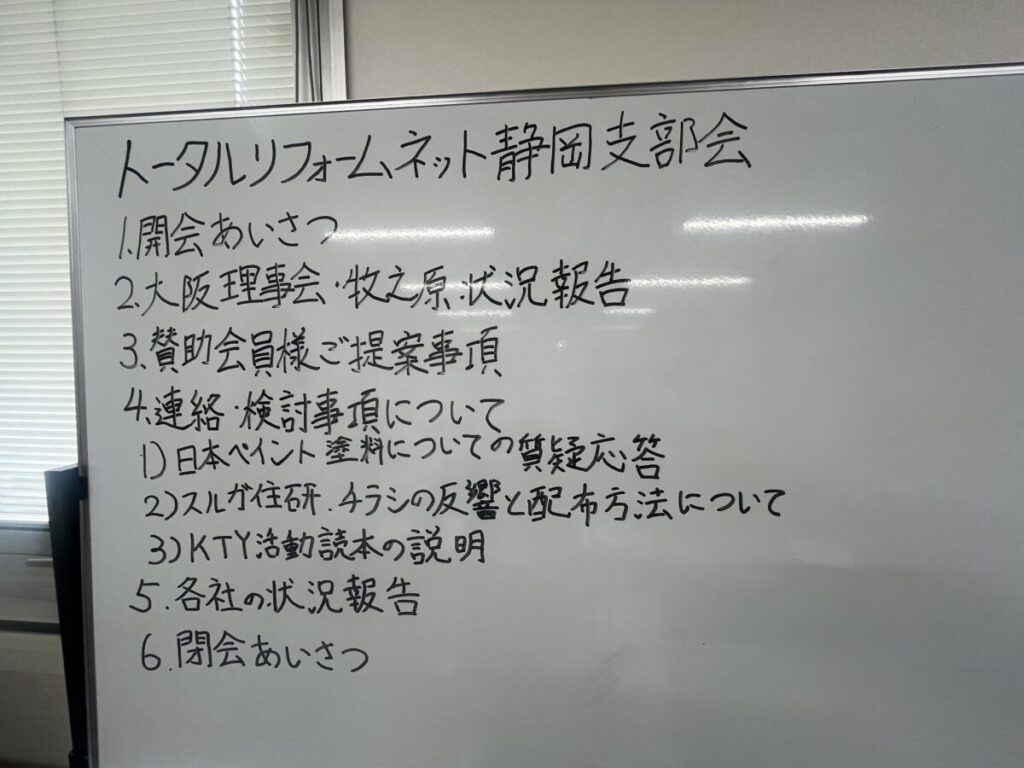 トータルリフォームネット静岡支部会
1.開会あいさつ
2.大阪理事会・牧之原.状況報告
3.賛助会員様ご提案事項
4.連絡・検討事項について
1)日本ペイント 塗料についての質疑応答
2)スルガ住研.チラシの反響と配布方法について
3)KTY活動読本の説明
5.各社の状況報告
6.閉会あいさつ